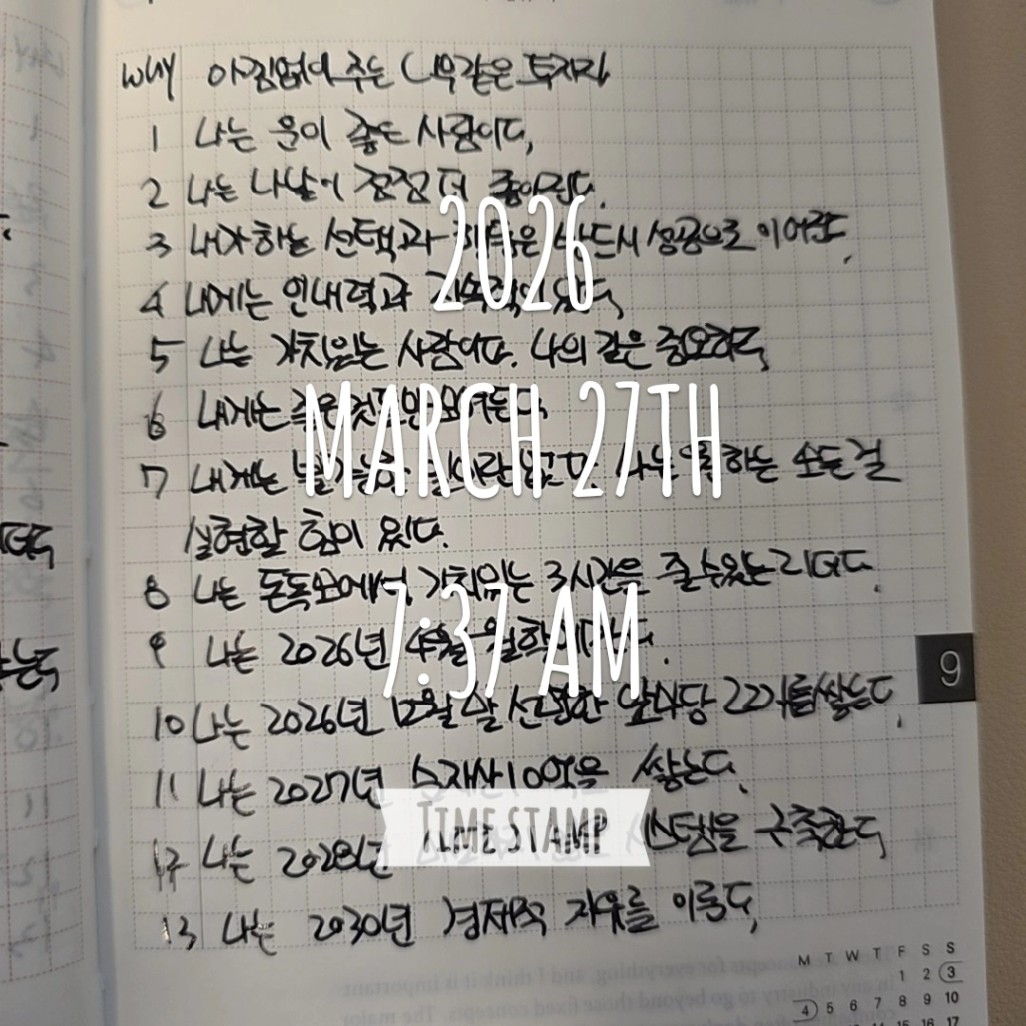 WHY 아낌없이 주는 나무같은 투자자
1 나는 운이 좋은 사람이다.
2 나는 나날이 점점 더 좋아진다.
3 내가 하는 선택과 반드시 성공으로 이어진다.
4 나에게는 인내력과 있다.
5 나는 가치있는 사람이다. 나의 삶은 중요하다.
6 내게는 좋은 것만
7 내게는 나는 원하는 모든 걸
실현할 힘이 있다.
8 나는 돈독모에서, 가치있는 3시간을 줄 수 있는 리더다.
9 나는 2026년 4월
10 나는 2026년 12월 앞마당 22개를 쌓는다.
11 나는 2027년 순자산 10억을 쌓는다.
12 나는 2028년 시스템을 구축한다
13 나는 2030년 경제적 자유를 이룬다.
2026
MARCH 27TH
7:37 AM
TIME STAMP
9
M T W T F S S
1 2 3
4 5 6 7 8 9 10
15 16 17